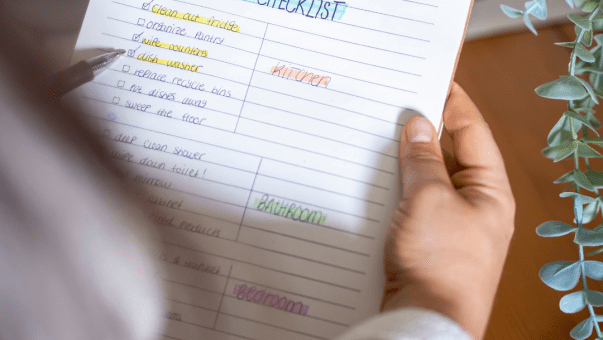 CHECKLIST
clean out fridge
organize pantry
wipe counters
dish washer
replace recycle bins
put dishes away
sweep the floor
KITCHEN
deep clean shower
wipe down toilet!
BATHROOM
products
BEDROOM